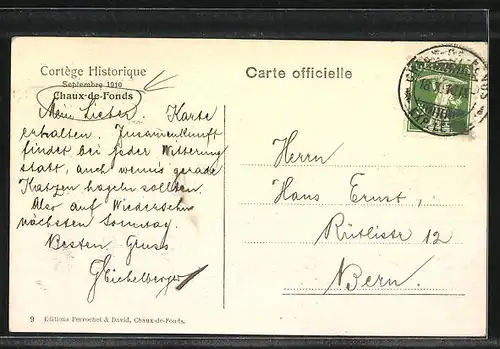 Cortège Historique
Septembre 1910
Chaux-de-Fonds
Carte officielle
Mein Lieber. Karte
erhalten. Zusammenkunft
findet bei jeder Witterung
statt, auch wenn's gerade
Katzen hageln sollten.
Also auf Wiedersehn
nächsten Sonntag.
Besten Gruss
GEichelberger
Herrn
Hans Ernst,
Rütlistr 12
Bern.
9 Editions Perrochet & David, Chaux-de-Fonds.